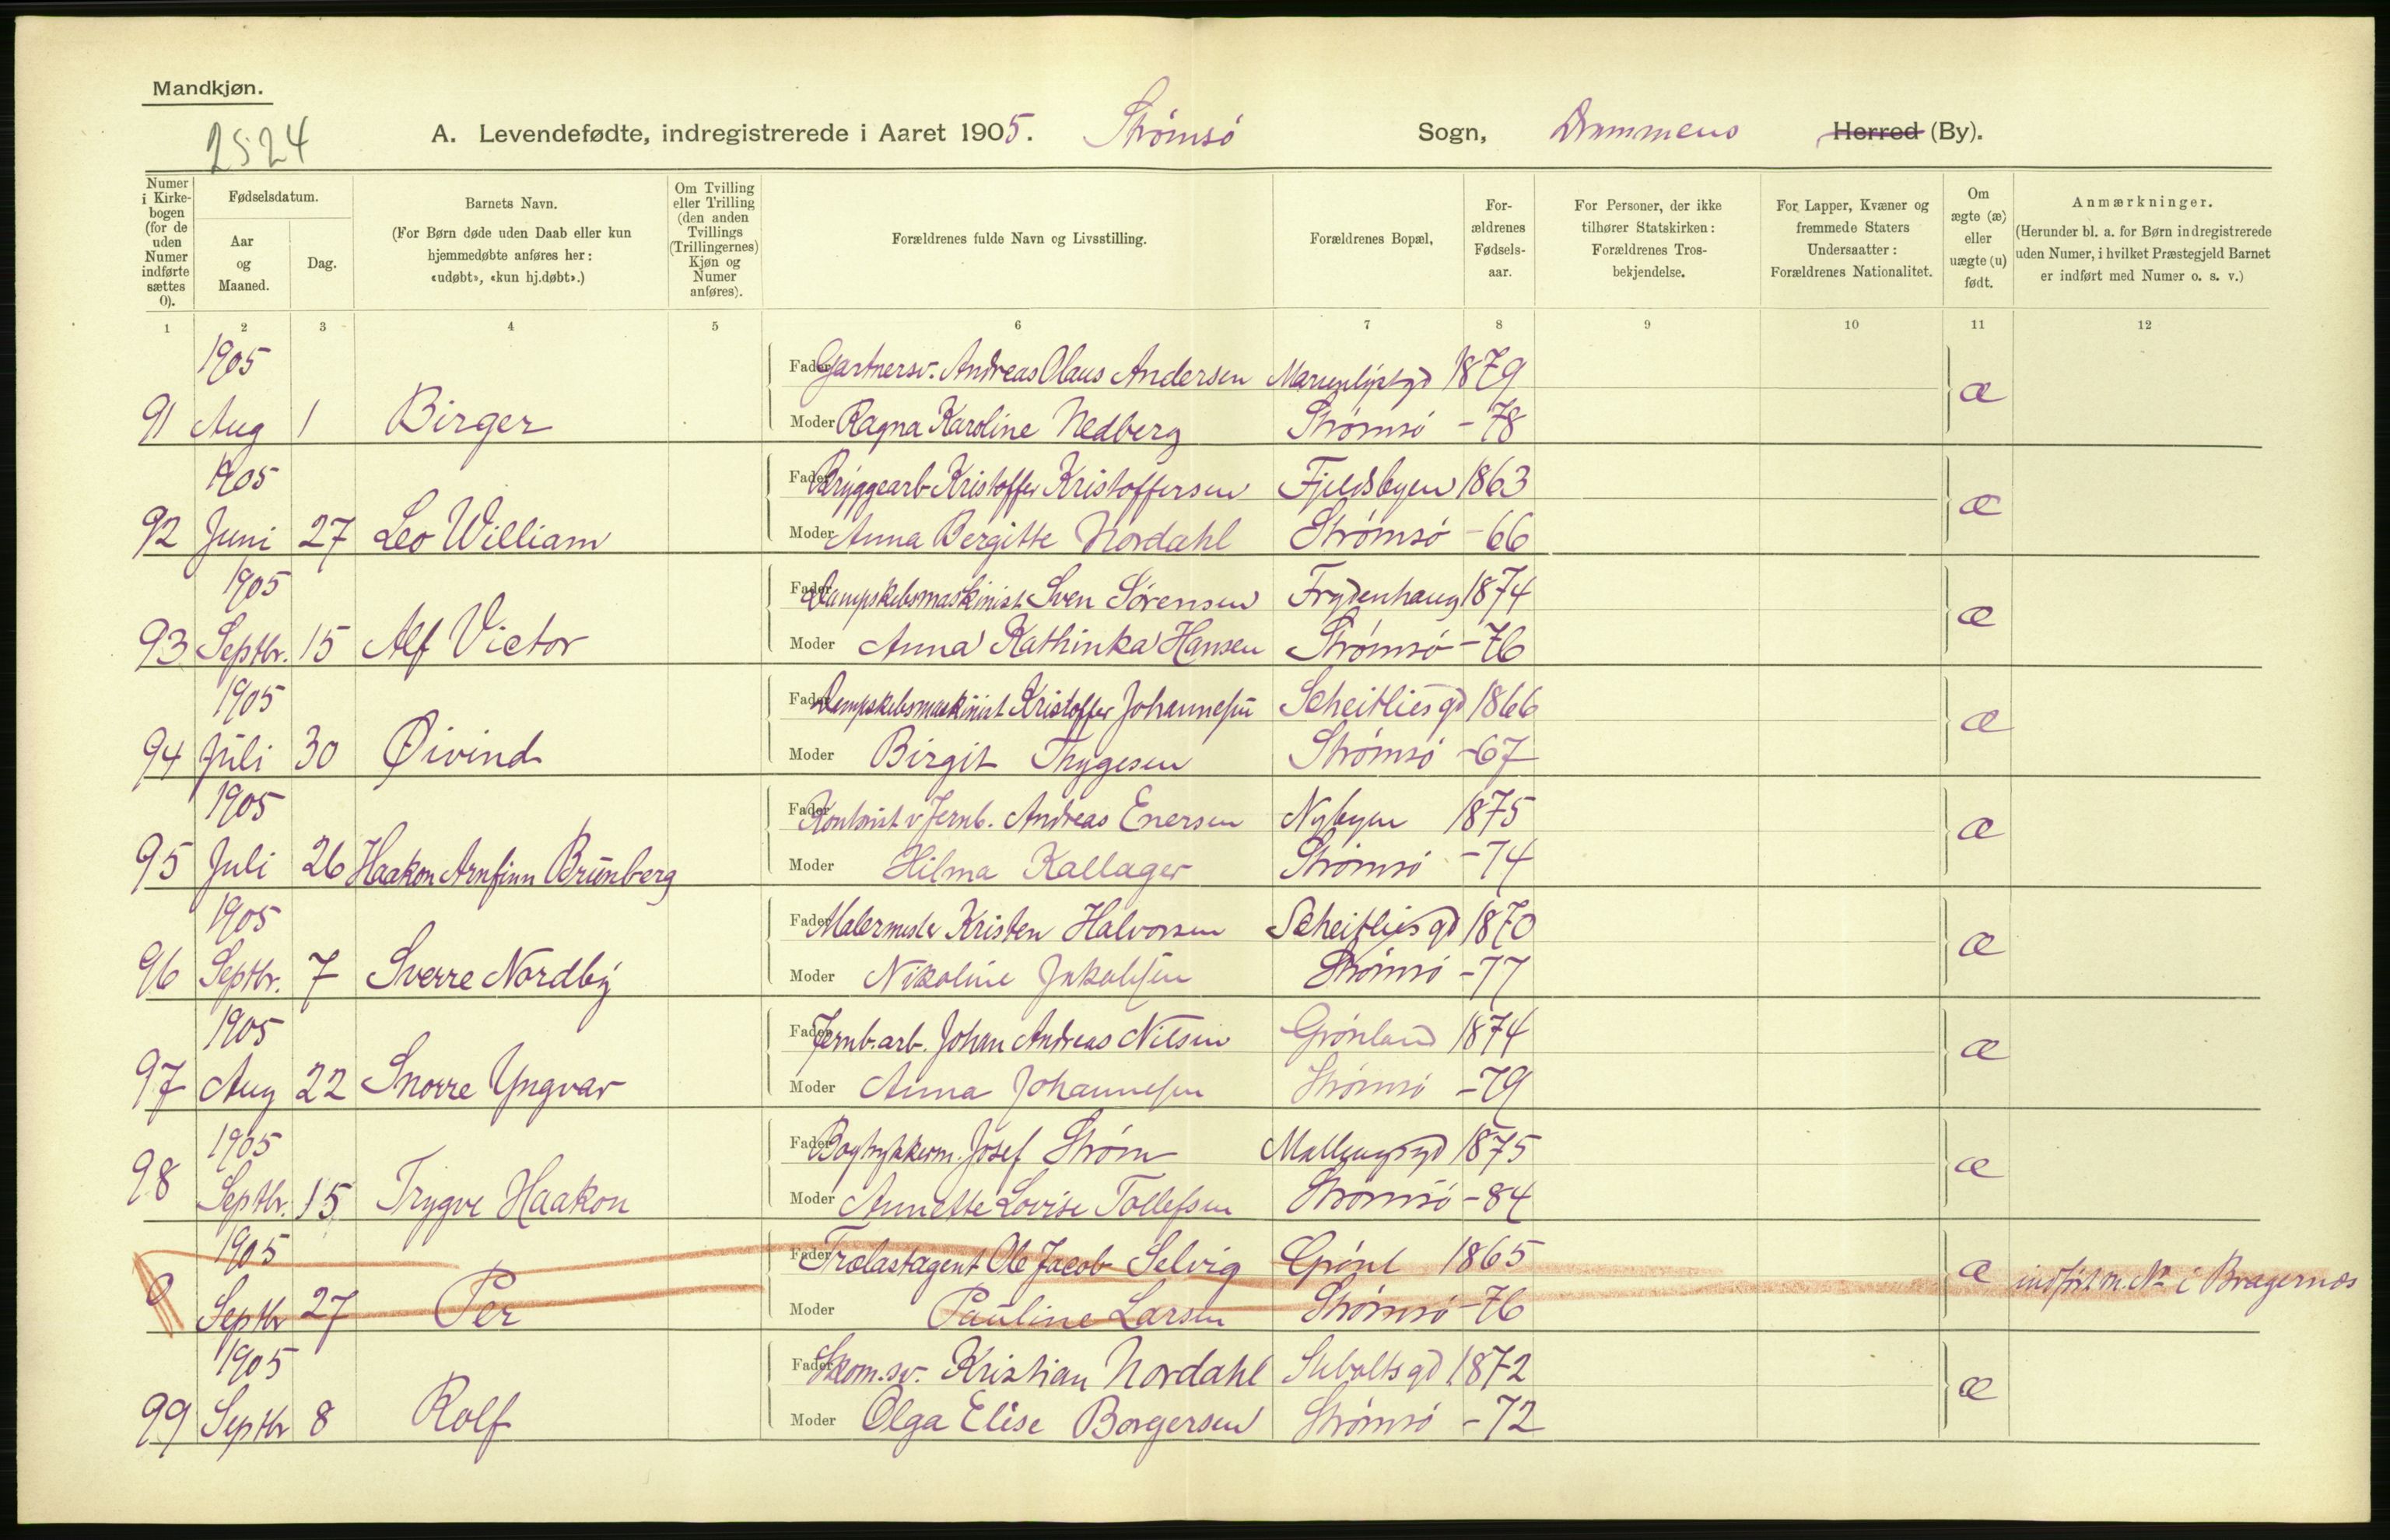 Mandkjøn.
2524
A. Levendefødte, indregistrerede i Aaret 1905. Strømsø Sogn, Drammens Herred (By).
Numer i Kirkebogen (for de uden Numer indførte sættes 0).
Fødselsdatum.
Aar og Maaned.
Dag.
Barnets Navn.
(For Børn døde uden Daab eller kun
hjemmedøbte anføres her:
«udøbt», «kun hj.døbt».)
Om Tvilling
eller Trilling
(den anden
Tvillings
(Trillingernes)
Kjøn og
Numer
anføres).
Forældrenes fulde Navn og Livsstilling.
Forældrenes Bopæl,
For-
ældrenes
Fødsels-
aar.
For Personer, der ikke
tilhører Statskirken:
Forældrenes Tros-
bekjendelse.
For Lapper, Kvæner og
fremmede Staters
Undersaatter:
Forældrenes Nationalitet.
Om
ægte (æ)
eller
uægte (u)
født.
Anmærkninger.
(Herunder bl. a. for Børn indregistrerede
uden Numer, i hvilket Præstegjeld Barnet
er indført med Numer o. s. v.)
1 2 3 4 5 6 7 8 9 10 11 12
1905 Fader Gartnersv. Andreas Olaus Andersen Marienlystgd 1879 æ
91 Aug 1 Birger Moder Ragna Karoline Nedberg Strømsø -78
1905 Fader Bryggearb Kristoffer Kristoffersen Fjeldsbyen 1863 æ
92 Juni 27 Leo William Moder Anna Bergitte Nordahl Strømsø -66
1905 Fader Dampskibsmaskinist Sven Sørensen Frydenhaug 1874 æ
93 Septbr. 15 Alf Victor Moder Anna Kathinka Hansen Strømsø -76
1905 Fader Dampskibsmaskinist Kristoffer Johannesen Scheitliesgd 1866 æ
94 Juli 30 Øivind Moder Birgit Thygesen Strømsø -67
1905 Fader Kontorist v Jernb. Andreas Enersen Nybyen 1875 æ
95 Juli 26 Haakon Arnfinn Brünberg Moder Hilma Kallager Strømsø -74
1905 Fader Malermester Kristen Halvorsen Scheitliesgd 1870 æ
96 Septbr. 7 Sverre Nordby Moder Nikoline Jakobsen Strømsø -77
1905 Fader Jernb.arb. Johan Andreas Nilsen Grønland 1874 æ
97 Aug 22 Snorre Yngvar Moder Anna Johannesen Strømsø -79
1905 Fader Bogtrykkerm. Josef Strøm 1875 æ
98 Septbr. 15 Trygve Haakon Moder Annette Lovise Tollefsen Strømsø -84
1905 Fader Trælastagent Ole Jacob Selvig Grønl 1865 æ indført m. No i Bragernæs
0 Septbr 27 Per Moder Pauline Larsen Strømsø -76
1905 Fader Skom.sv. Kristian Nordahl 1872 æ
99 Septbr 8 Rolf Moder Olga Elise Borgersen Strømsø -72